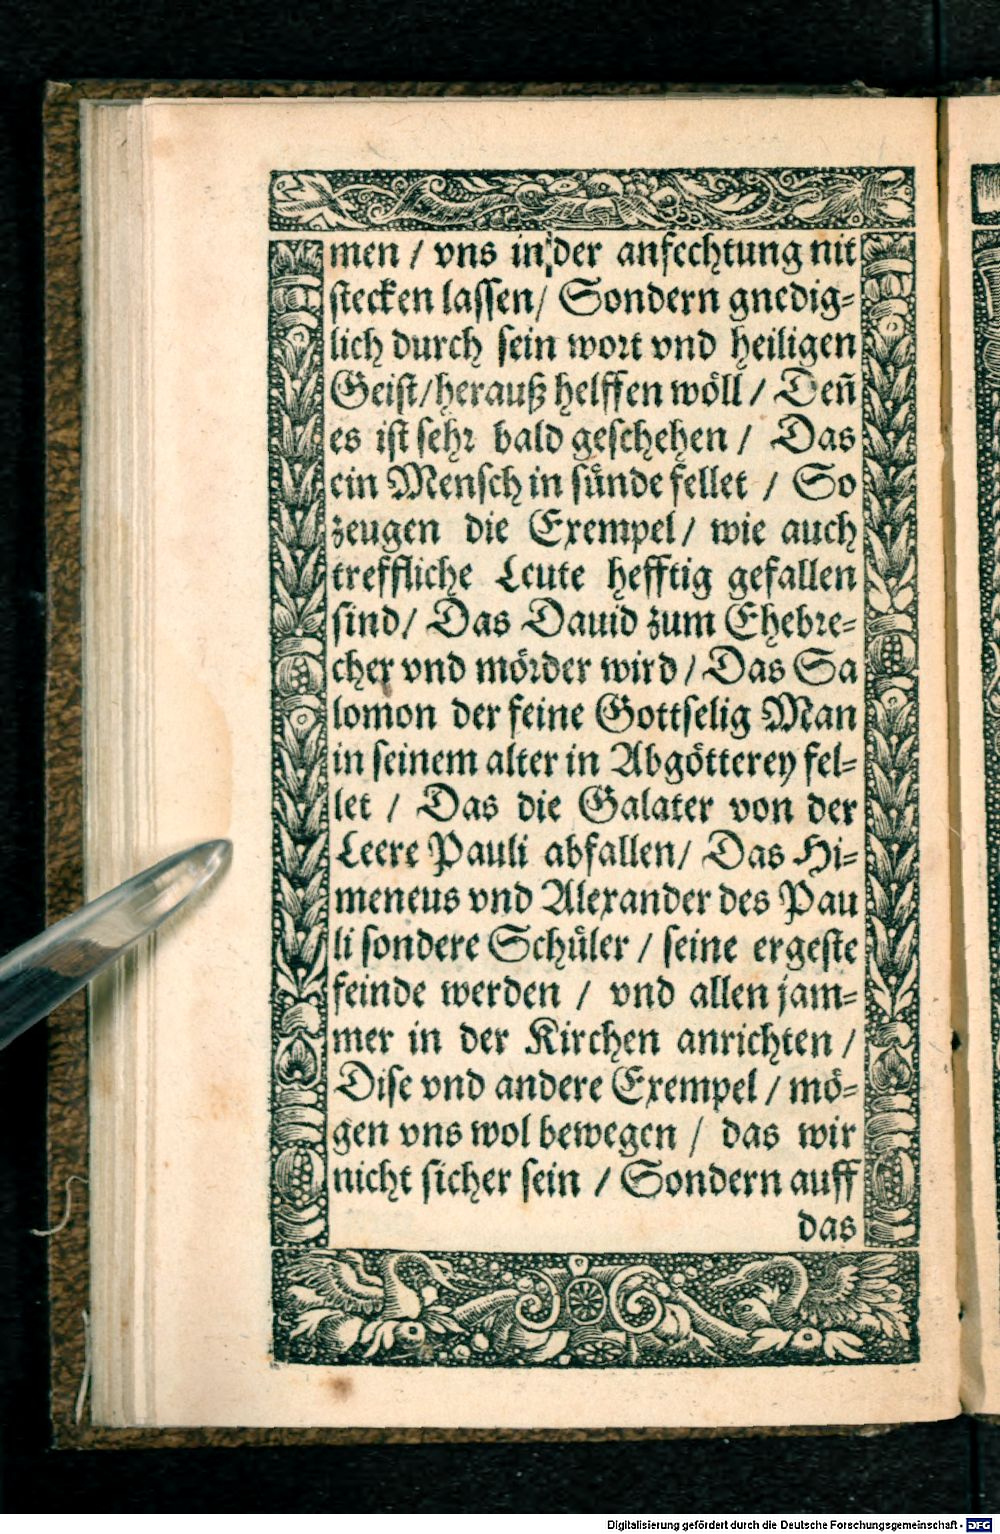 men / vns in der anfechtung nit
stecken lassen / Sondern gnedig=
lich durch sein wort vnd heiligen
Geist / herauß helffen wöll / Deñ
es ist sehr bald geschehen / Das
ein Mensch in sünde fellet / So
zeugen die Exempel / wie auch
treffliche Leute hefftig gefallen
sind / Das Dauid zum Ehebre=
cher vnd mörder wird / Das Sa
lomon der feine Gottselig Man
in seinem alter in Abgötterey fel=
let / Das die Galater von der
Leere Pauli abfallen / Das Hi=
meneus vnd Alexander des Pau
li sondere Schüler / seine ergeste
feinde werden / vnd allen jam=
mer in der Kirchen anrichten /
Dise vnd andere Exempel / mö=
gen vns wol bewegen / das wir
nicht sicher sein / Sondern auff
das
Digitalisierung gefördert durch die Deutsche Forschungsgemeinschaft - DFG